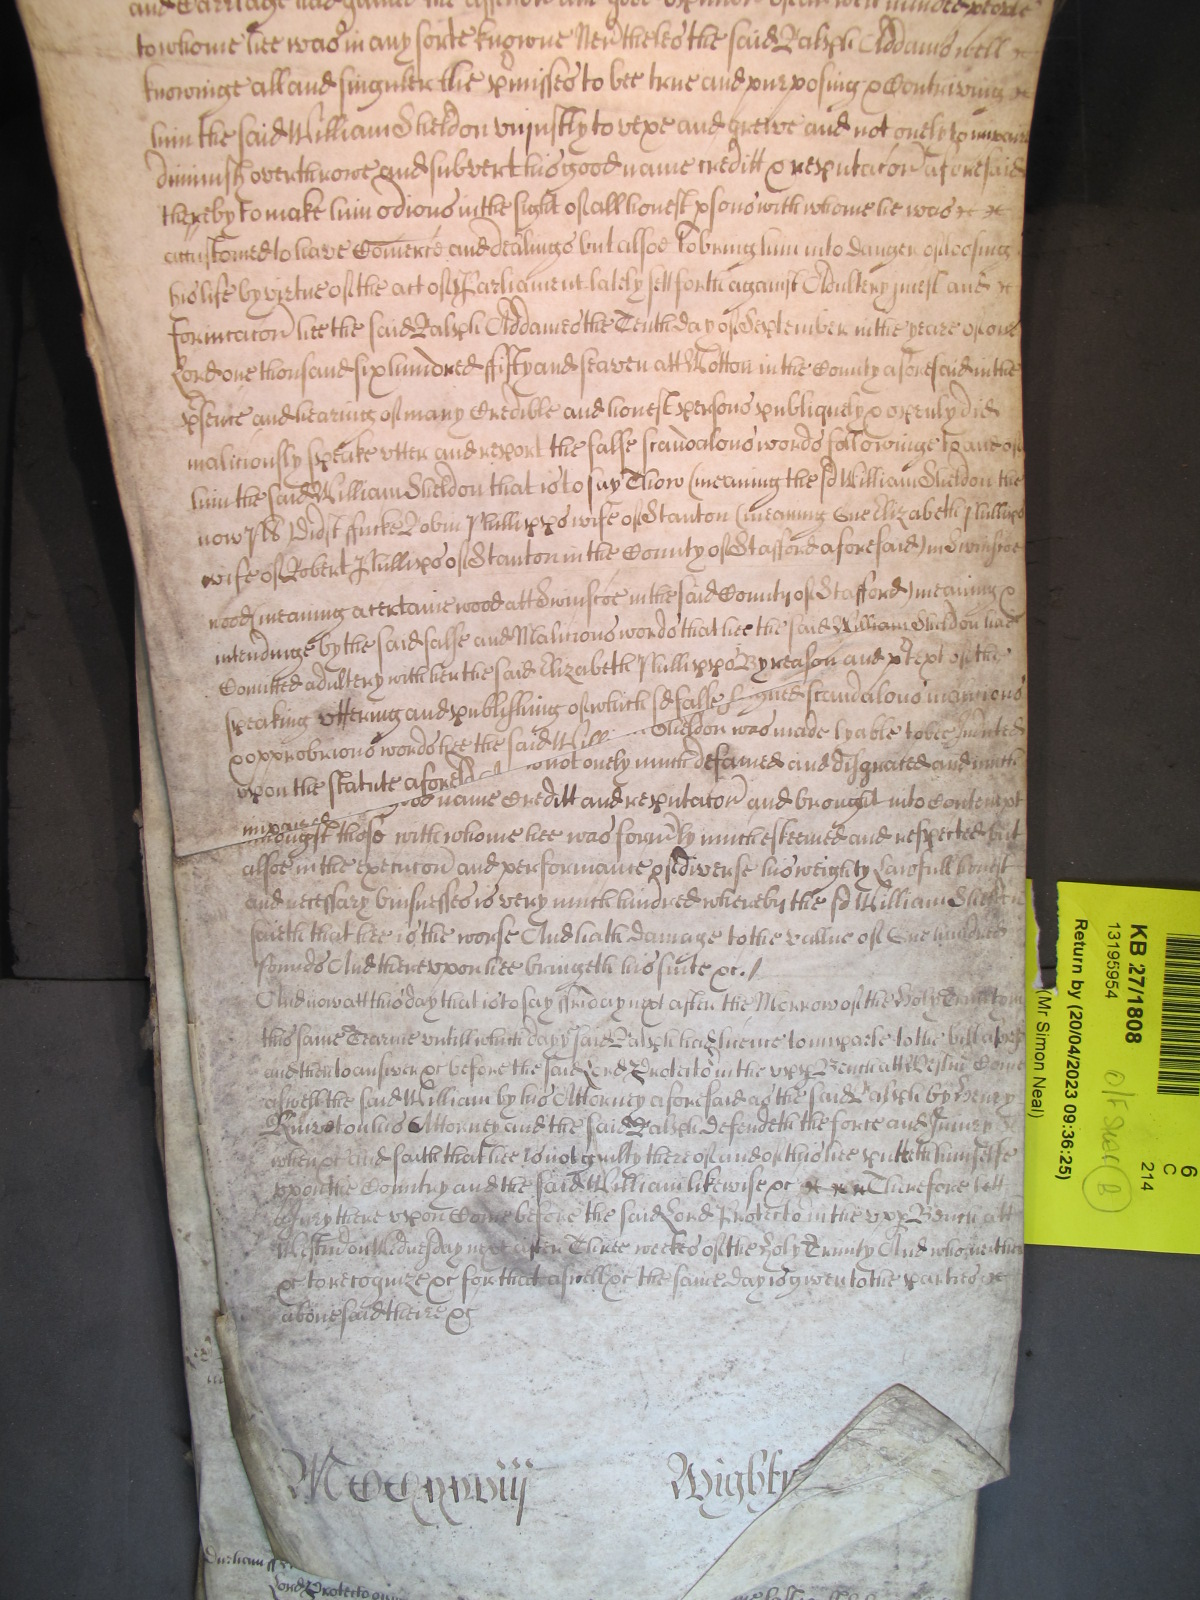 and Carriage had gained the affection and good opinion of
to whome hee was in any sorte knowne Nev'theles the said Ralph Addams well
knowinge all and singuler the p'misses to bee true and purposing & Contriving
him the said William Sheldon uniustly to vexe and greive and not onely to
diminish overthrowe and subvert his good name creditt & reputac͠on aforesaid
thereby to make him odious in the sight of all honest p'sons with whome hee was
accustomed to have Comerce and dealings but alsoe to bring him into danger of loosing
his life by virtue of the act of Parliament lately sett forth against Adultery incest and
fornicac͠on hee the said Ralph Addames the Tenth day of September in the yeare of our
Lord one thousand six hundred fifty and seaven att Motton in the County aforesaid in the
p'sence and hearing of many Credible and honest persons publiquely & openly did
maliciously speake utter and report the false scandalous words followinge to and of
him the said William Sheldon that is to say Thow (meaning the sd William Sheldon the
now pl't) Didst ffucke Robin Phillipps wife of Stanton (meaning One Elizabeth Phillips
wife of Robert Phillips of Stanton in the County of Stafford aforesaid) in Swinscoe
wood (meaning a certaine wood att Swinscoe in the said County of Stafford) meaning &
intendinge by the said false and Malicious words that hee the said William Sheldon had
Comitted adultery with her the said Elizabeth Phillipps By reason and p'text of the
speaking uttering and publishing of which sd false feigned scandalous iniurious
& opprobrious words hee the said Will Sheldon was made lyable to bee Indicted
upon the statute aforesd not onely much defamed and disgraced and much
impaired good name Creditt and reputac͠on and brought into Contempt
amongst those with whome hee was form'ly much esteemed and respected but
alsoe in the execuc͠on and performance of diverse his weighty Lawfull honest
and necessary buisnesses is very much hindred whereby the sd William Sheldon
saieth that hee is the worse And hath damage to the vallue of One hundred
Pounds And thereupon hee bringeth his suite &c. /
And now att this day that is to say ffriday next after the Morrow of the Holy Trinity in
this same Tearme untill which day ye said Ralph had licence to imparle to the bill
and then to answer &c before the said Lord Protector in the upp' Bench att Westm' Come
aswell the said William by his Attorney aforesaid as the said Ralph by Henry
his Attorney and the said Ralph defendeth the force and Iniury
when &c And saith that hee is not guilty thereof and of this hee putteth himselfe
upon the Country and the said William likewise &c Therefore lett
a Iury thereupon Come before the said Lord Protector in the upp' Bench att
Westm' on Wednesday next after Three weekes of the Holy Trinity And who neither
&c to recognize &c for that aswell &c the same day is given to the parties
abovesaid there &c
Wighty
Durham ss
Lord Protector
KB 27/1808
13195954
Return by (20/04/2023 09:36:25)
(Mr Simon Neal)
6
C
214
B